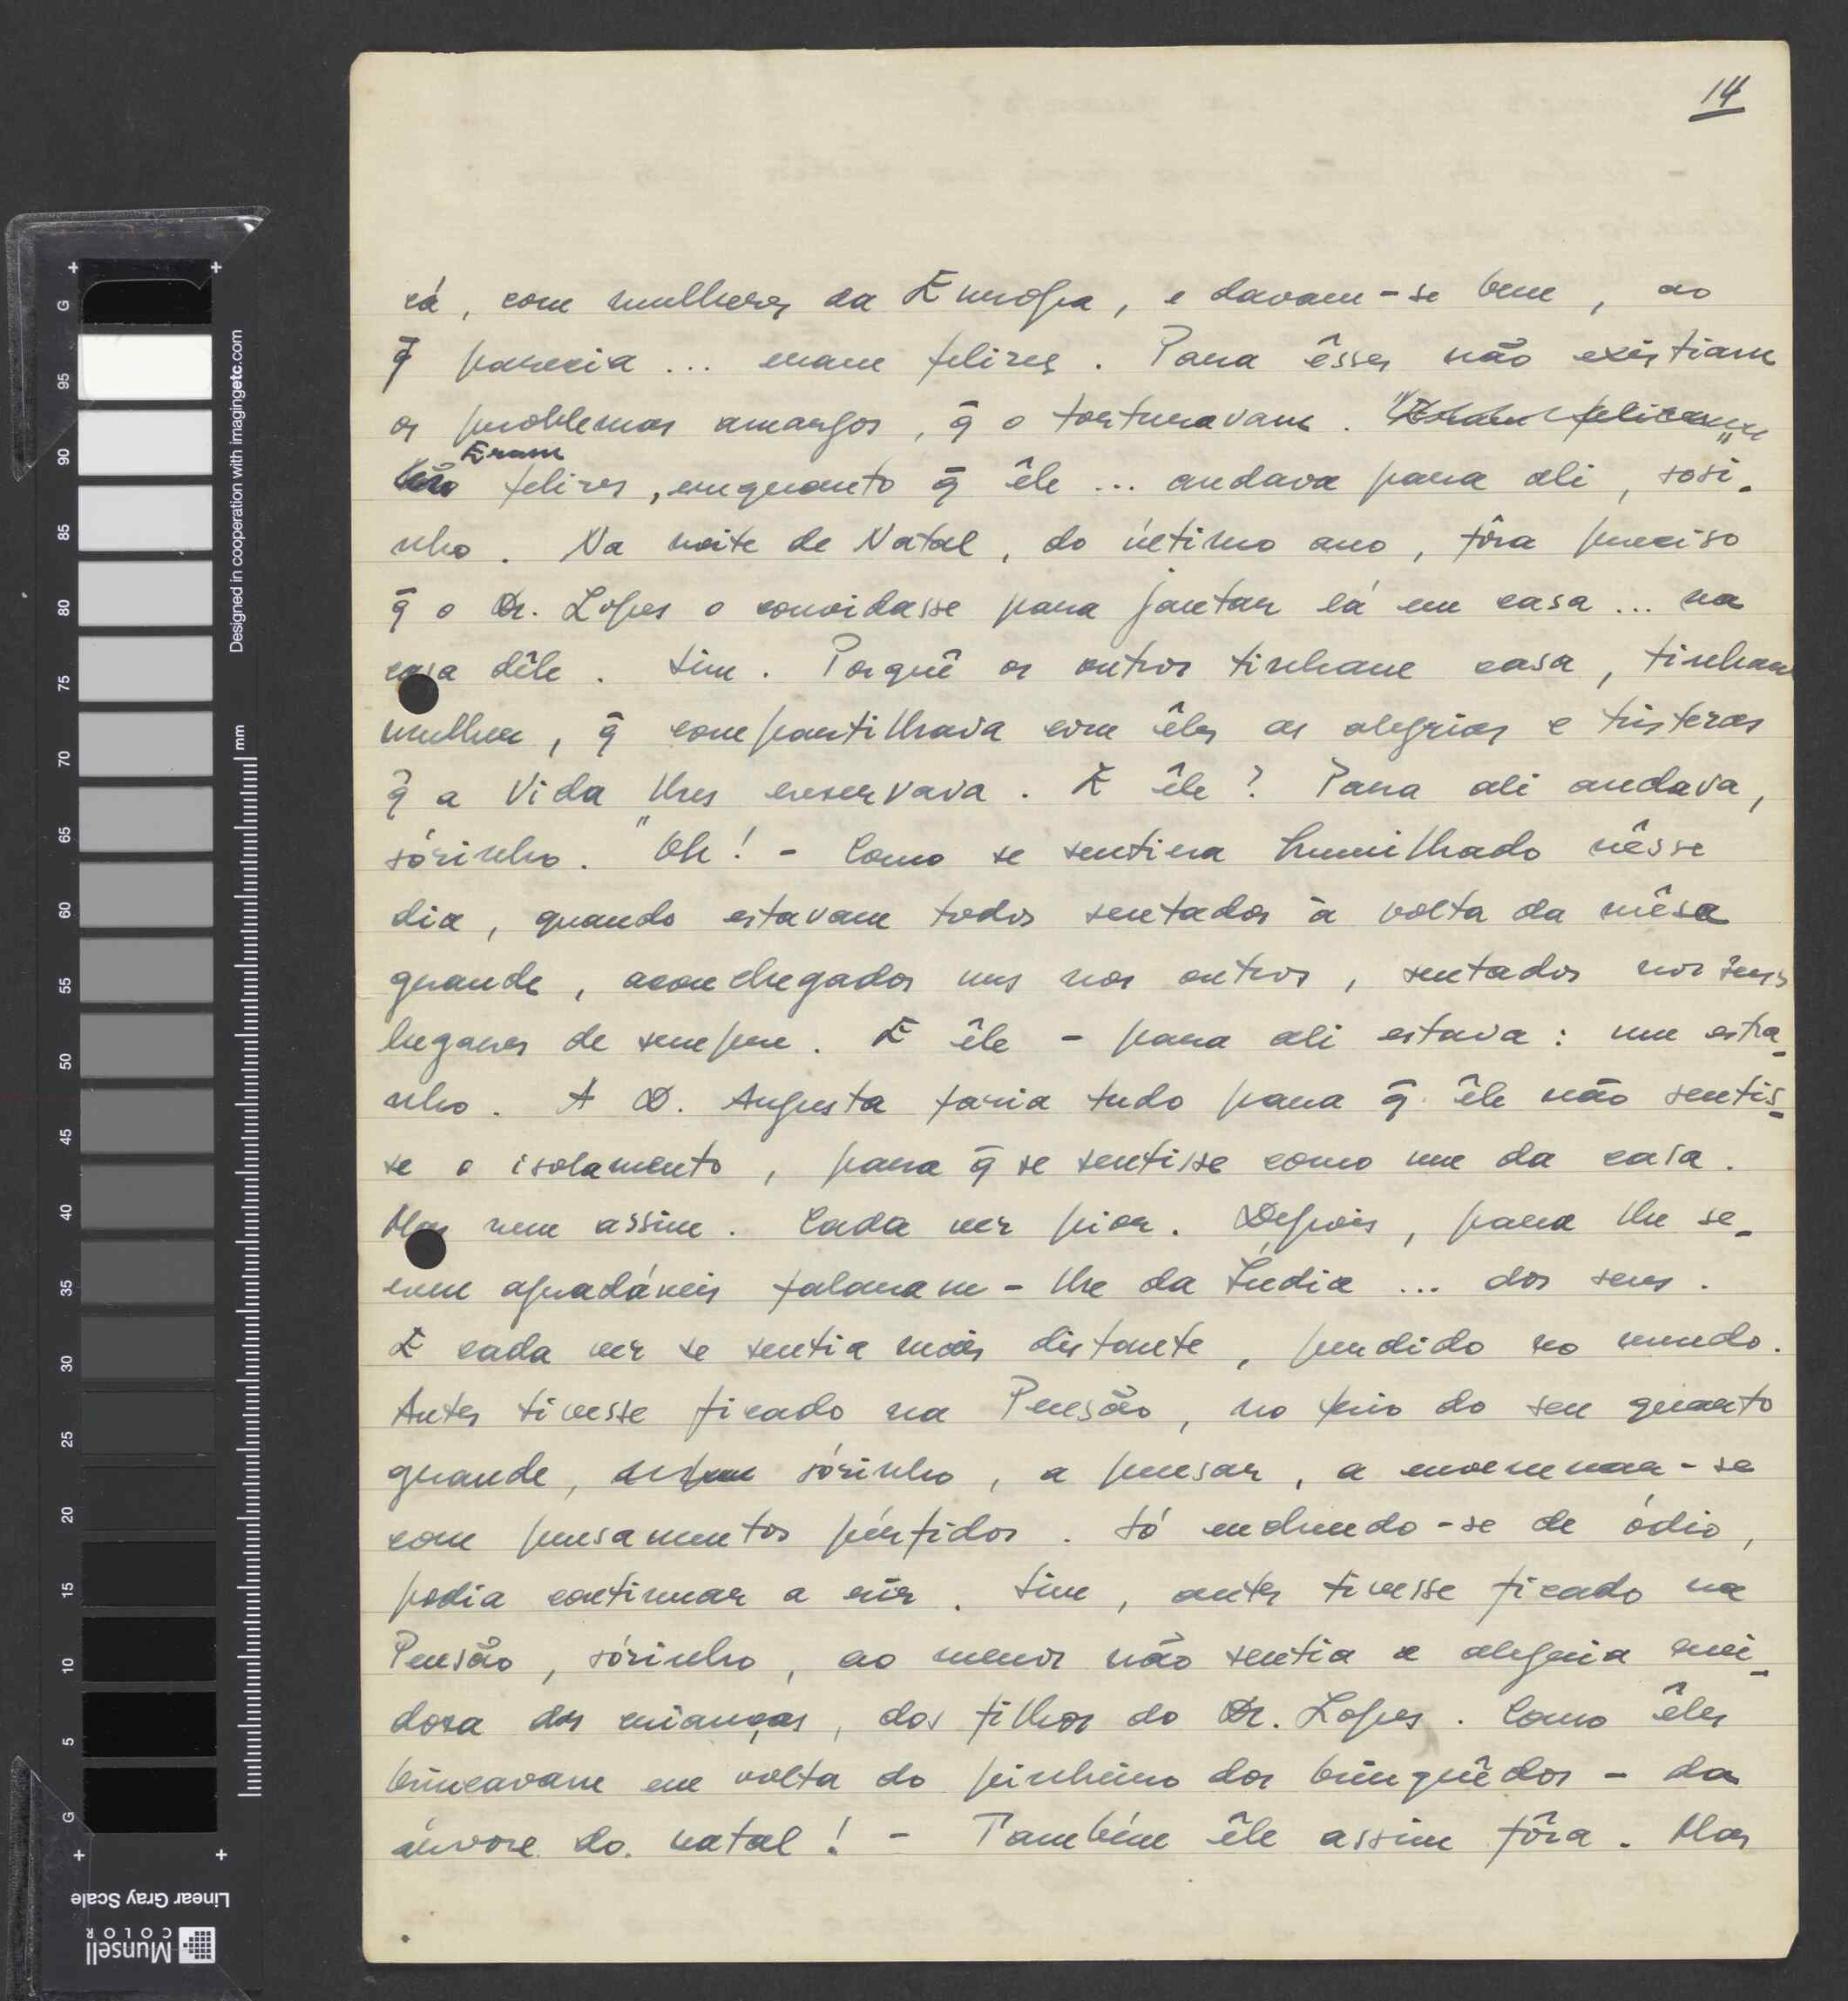 14
cá, com mulheres da Europa, e davam-se bem, ao
q̃ parecia ... eram felizes. Para êsses não existiam
os problemas amargos, q̃ o torturavam.
Eram
felizes, enquanto q̃ êle ... andava para ali, sosi-
nho. Na noite de Natal, do último ano, fôra preciso
q̃ o Dr. Lopes o convidasse para jantar lá em casa ... na
casa dêle. Sim. Porquê os outros tinham casa, tinham
mulher, q̃ compartilhava com êles as alegrias e tristezas
q̃ a Vida lhes reservava. E êle? Para ali andava,
sózinho. "Oh! - Como se sentira humilhado nêsse
dia, quando estavam todos sentados à volta da mêsa
grande, aconchegados uns nos outros, sentados nos seus
lugares de sempre. E êle - para ali estava: um estra-
nho. A D. Augusta faria tudo para q̃ êle não sentis-
se o isolamento, para q̃ se sentisse como um da casa.
Mas nem assim. Cada vez pior. Depois, para lhe se-
rem agradáveis falaram-lhe da Índia ... dos seus.
E cada vez se sentia mais distante, perdido no mundo.
Antes tivesse ficado na Pensão, no frio do seu quarto
grande, sózinho, a pensar, a envenenar-se
com pensamentos pérfidos. Só enchendo-se de ódio,
podia continuar a rir. Sim, antes tivesse ficado na
Pensão, sózinho, ao menos não sentia a alegria rui-
dosa das crianças, dos filhos do Dr. Lopes. Como êles
brincavam em volta do pinheiro dos brinquêdos - da
árvore do natal! - Também êle assim fôra. Mas
Designed in cooperation with imagingetc.com
mm
G 95 90 85 80 75 70 65 60 55 50 45 40 35 30 25 20 15 10 5 G
Linear Gray Scale
Munsell
COLOR